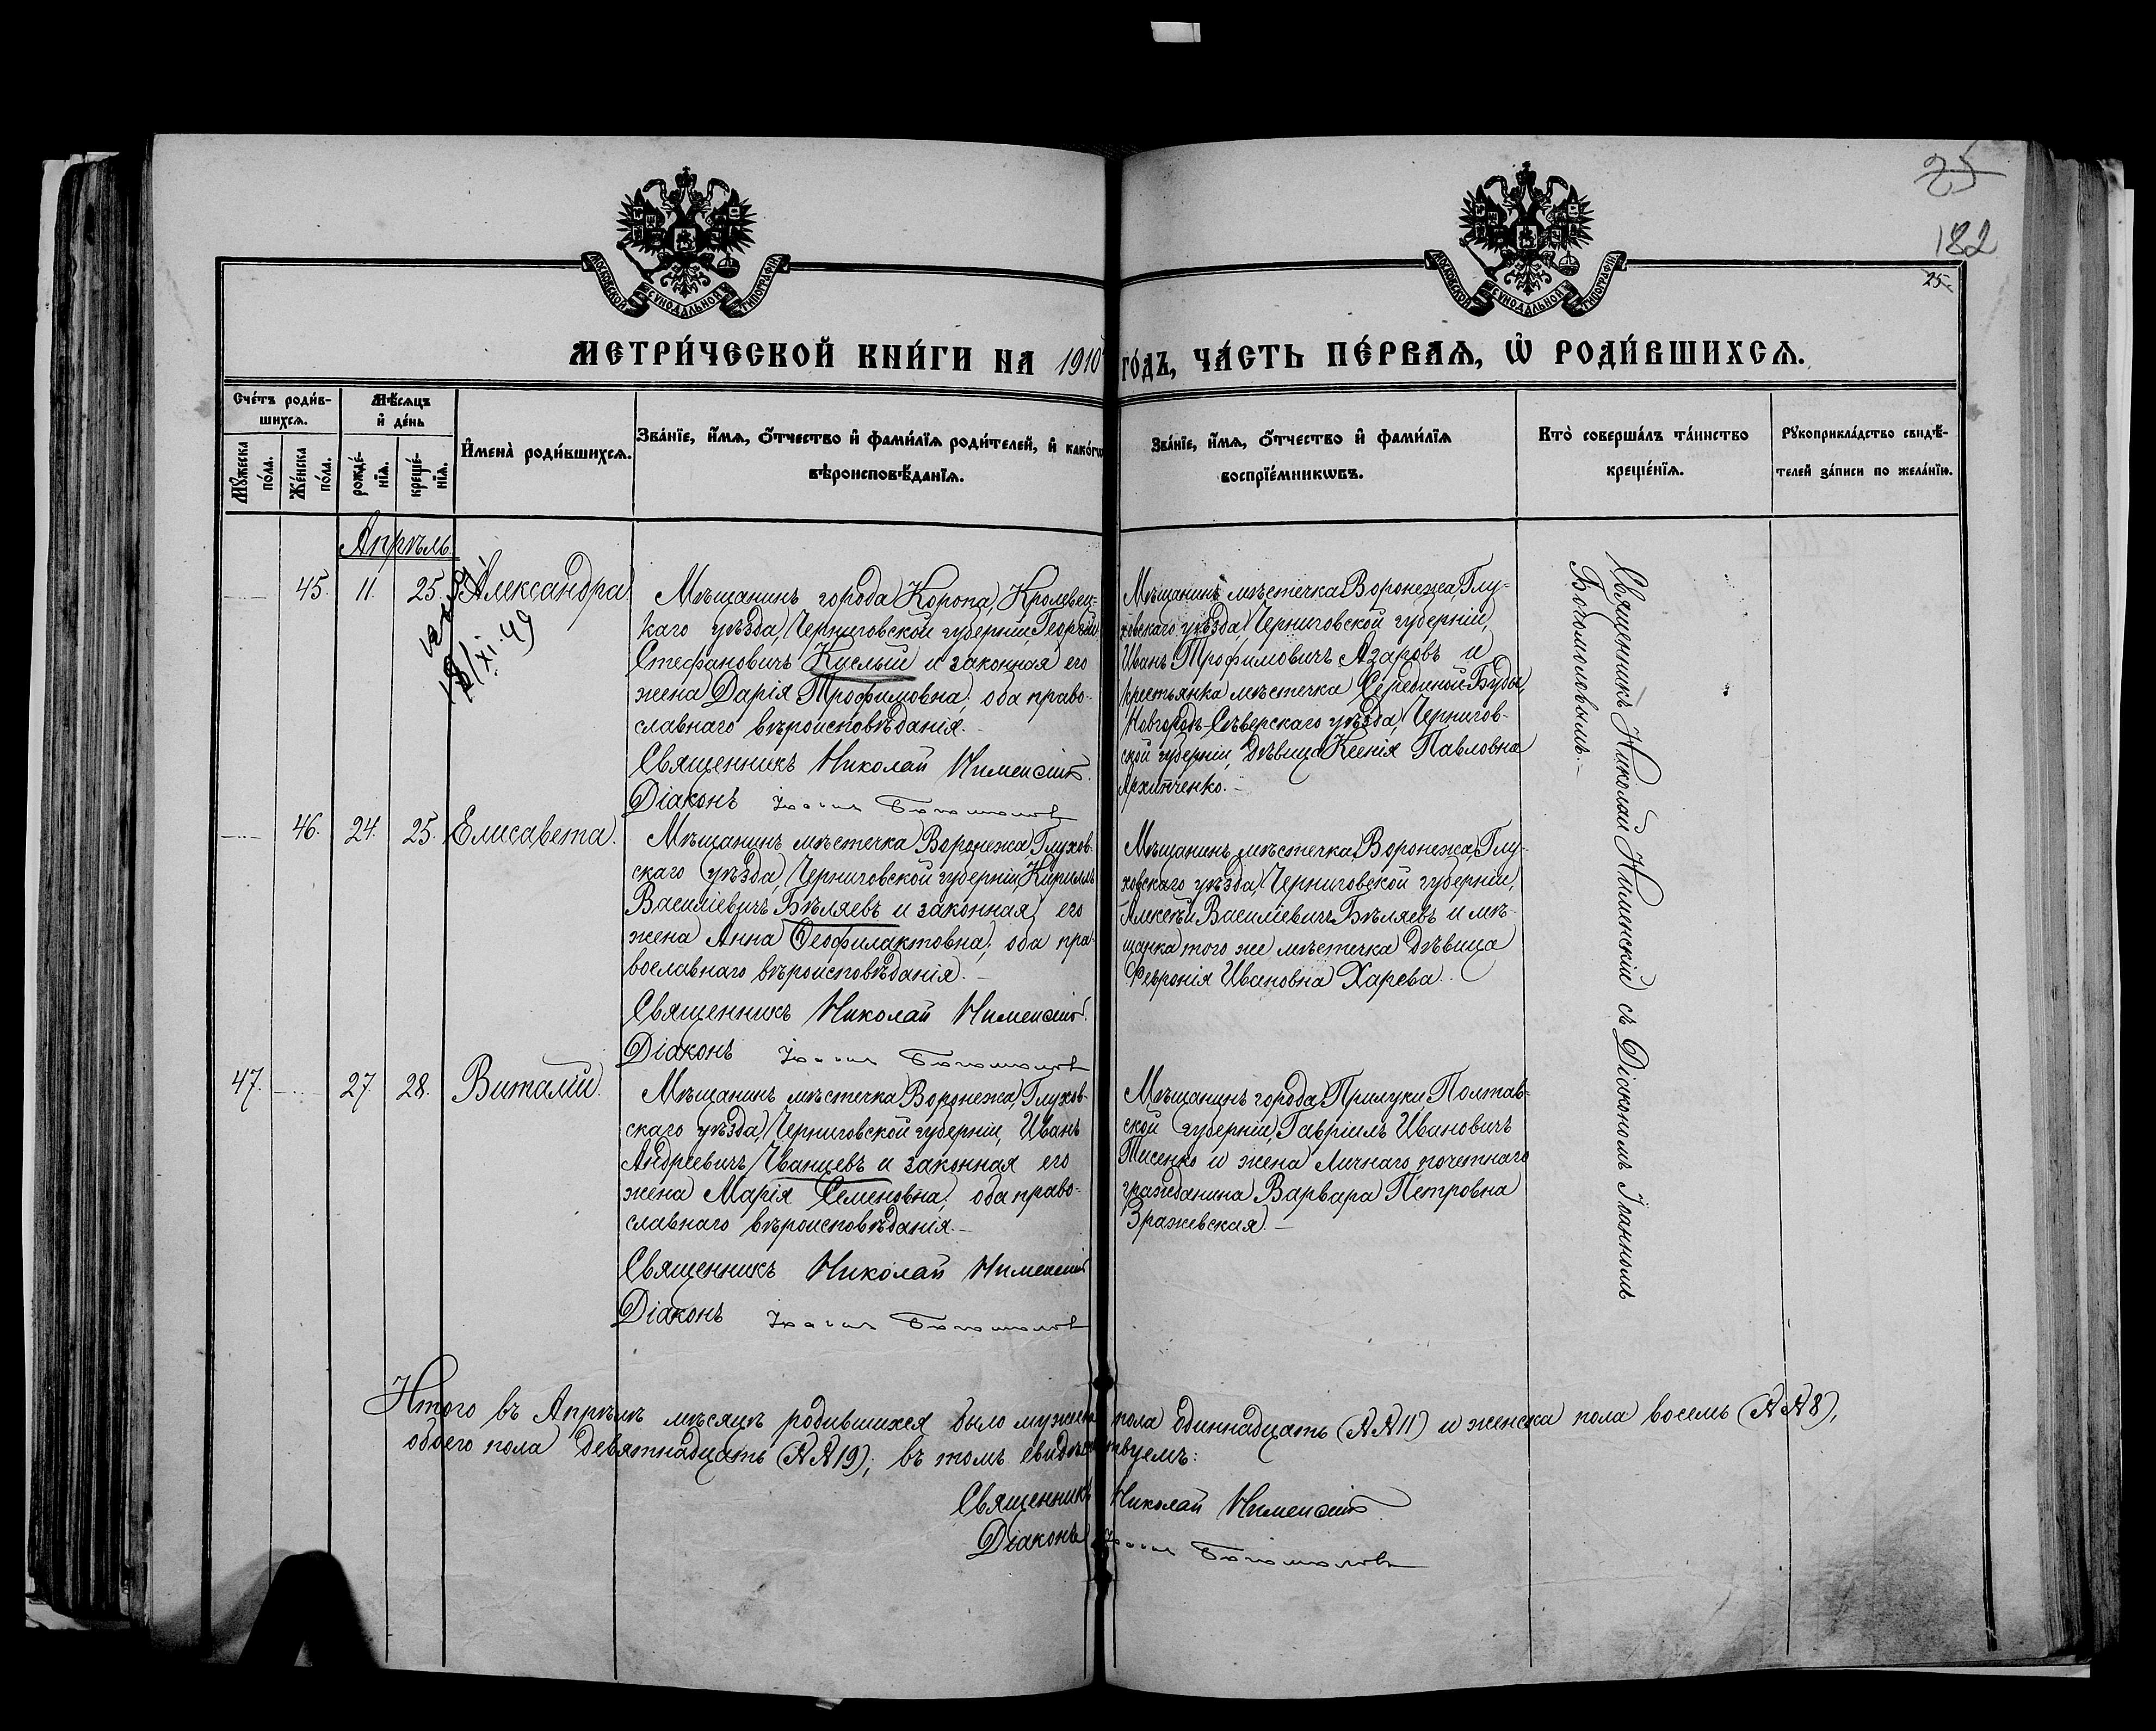 25
182
25
МОСКОВСКОЙ СУНОДАЛЬНОЙ ТИПОГРАФІИ
МОСКОВСКОЙ СУНОДАЛЬНОЙ ТИПОГРАФІИ
МЕТРИ́ЧЕСКОЙ КНИ́ГИ НА 1910 ГО́ДЪ, ЧА́СТЬ ПЕ́РВАѦ, Ѡ҆ РОДИ́ВШИХСѦ.
Сче́тъ роди́в-
шихсѧ.
Мꙋ́жеска по́ла.
Же́нска по́ла.
Мѣ́сѧцъ
и҆ де́нь
рожде́-
нїѧ.
креще́-
нїѧ.
И҆мена̀ роди́вшихсѧ.
Зва́нїе, и҆́мѧ, ѻ҆́тчество и҆ фами́лїѧ роди́телей, и҆ како́гѡ
вѣроисповѣ́данїѧ.
Зва́нїе, и҆́мѧ, ѻ҆́тчество и҆ фами́лїѧ
воспрїе́мникѡвъ.
Кто̀ соверша́лъ та́инство
креще́нїѧ.
Рꙋкоприкла́дство свидѣ́-
телей за́писи по жела́нїю.
Апрѣль
45. 11. 25. Александра
XI. 49
Мѣщанинъ города Коропа, Кролевец-
каго уѣзда, Черниговской губерніи, Георгій
Стефановичъ Кислый и законная его
жена Дарія Трофимовна, оба право-
славнаго вѣроисповѣданія.
Священникъ Николай
Діаконъ Іоаннъ Богомоловъ
Мѣщанинъ мѣстечка Воронежа, Глу-
ховскаго уѣзда, Черниговской губерніи,
Иванъ Трофимовичъ Азаровъ и
крестьянка мѣстечка Середино-Буды,
Новгородъ-Сѣверскаго уѣзда, Чернигов-
ской губерніи, дѣвица Ксенія Павловна
Архипченко.
Священникъ Николай Нименскій съ Діакономъ Іоанномъ
Богомоловымъ.
46. 24. 25. Елисавета.
Мѣщанинъ мѣстечка Воронежа, Глухов-
скаго уѣзда, Черниговской губерніи, Кириллъ
Василіевичъ Бѣляевъ и законная его
жена Анна Ѳеофилактовна, оба пра-
вославнаго вѣроисповѣданія.
Священникъ Николай
Діаконъ Іоаннъ Богомоловъ
Мѣщанинъ мѣстечка Воронежа, Глу-
ховскаго уѣзда, Черниговской губерніи,
Алексѣй Василіевичъ Бѣляевъ и мѣ-
щанка того же мѣстечка дѣвица
Февронія Ивановна Харева.
47. 27. 28. Виталій.
Мѣщанинъ мѣстечка Воронежа, Глухов-
скаго уѣзда, Черниговской губерніи, Иванъ
Андреевичъ Иванцевъ и законная его
жена Марія Семеновна, оба право-
славнаго вѣроисповѣданія.
Священникъ Николай
Діаконъ Іоаннъ Богомоловъ
Мѣщанинъ города Прилуки, Полтав-
ской губерніи, Гавріилъ Ивановичъ
Тисенко и жена личнаго почетнаго
гражданина Варвара Петровна
Зражевская.
Итого въ Апрѣлѣ мѣсяцѣ родившихся было мужеска пола одиннадцать (№№ 11) и женска пола восемь (№№ 8),
обоего пола девятнадцать (№№ 19); въ томъ свидѣтельствуемъ:
Священникъ Николай
Діаконъ Іоаннъ Богомоловъ